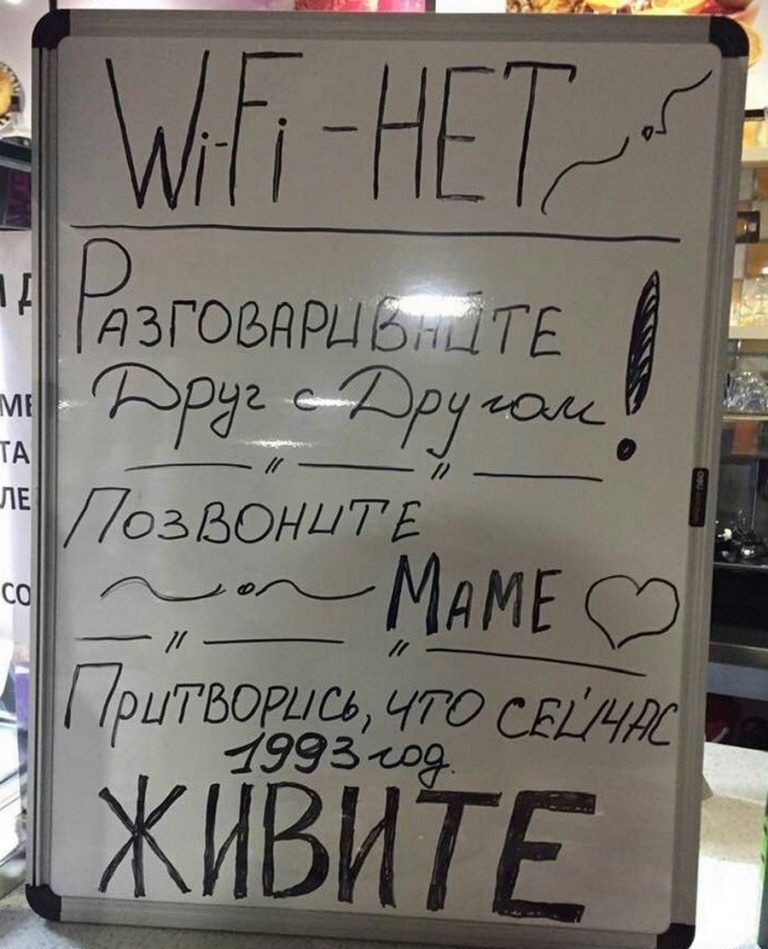 Wi-Fi - НЕТ
РАЗГОВАРИВАЙТЕ
Друг с Другом!
ПОЗВОНИТЕ
МАМЕ ♡
ПРИТВОРИСЬ, ЧТО СЕЙЧАС
1993 год.
ЖИВИТЕ